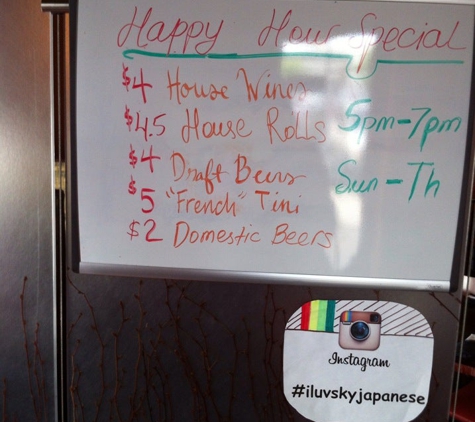 Happy Hour Special
$4 House Wines
$4.5 House Rolls
$4 Draft Beers
$5 "French" Tini
$2 Domestic Beers
5pm-7pm
Sun-Th
Instagram
#iluvskyjapanese